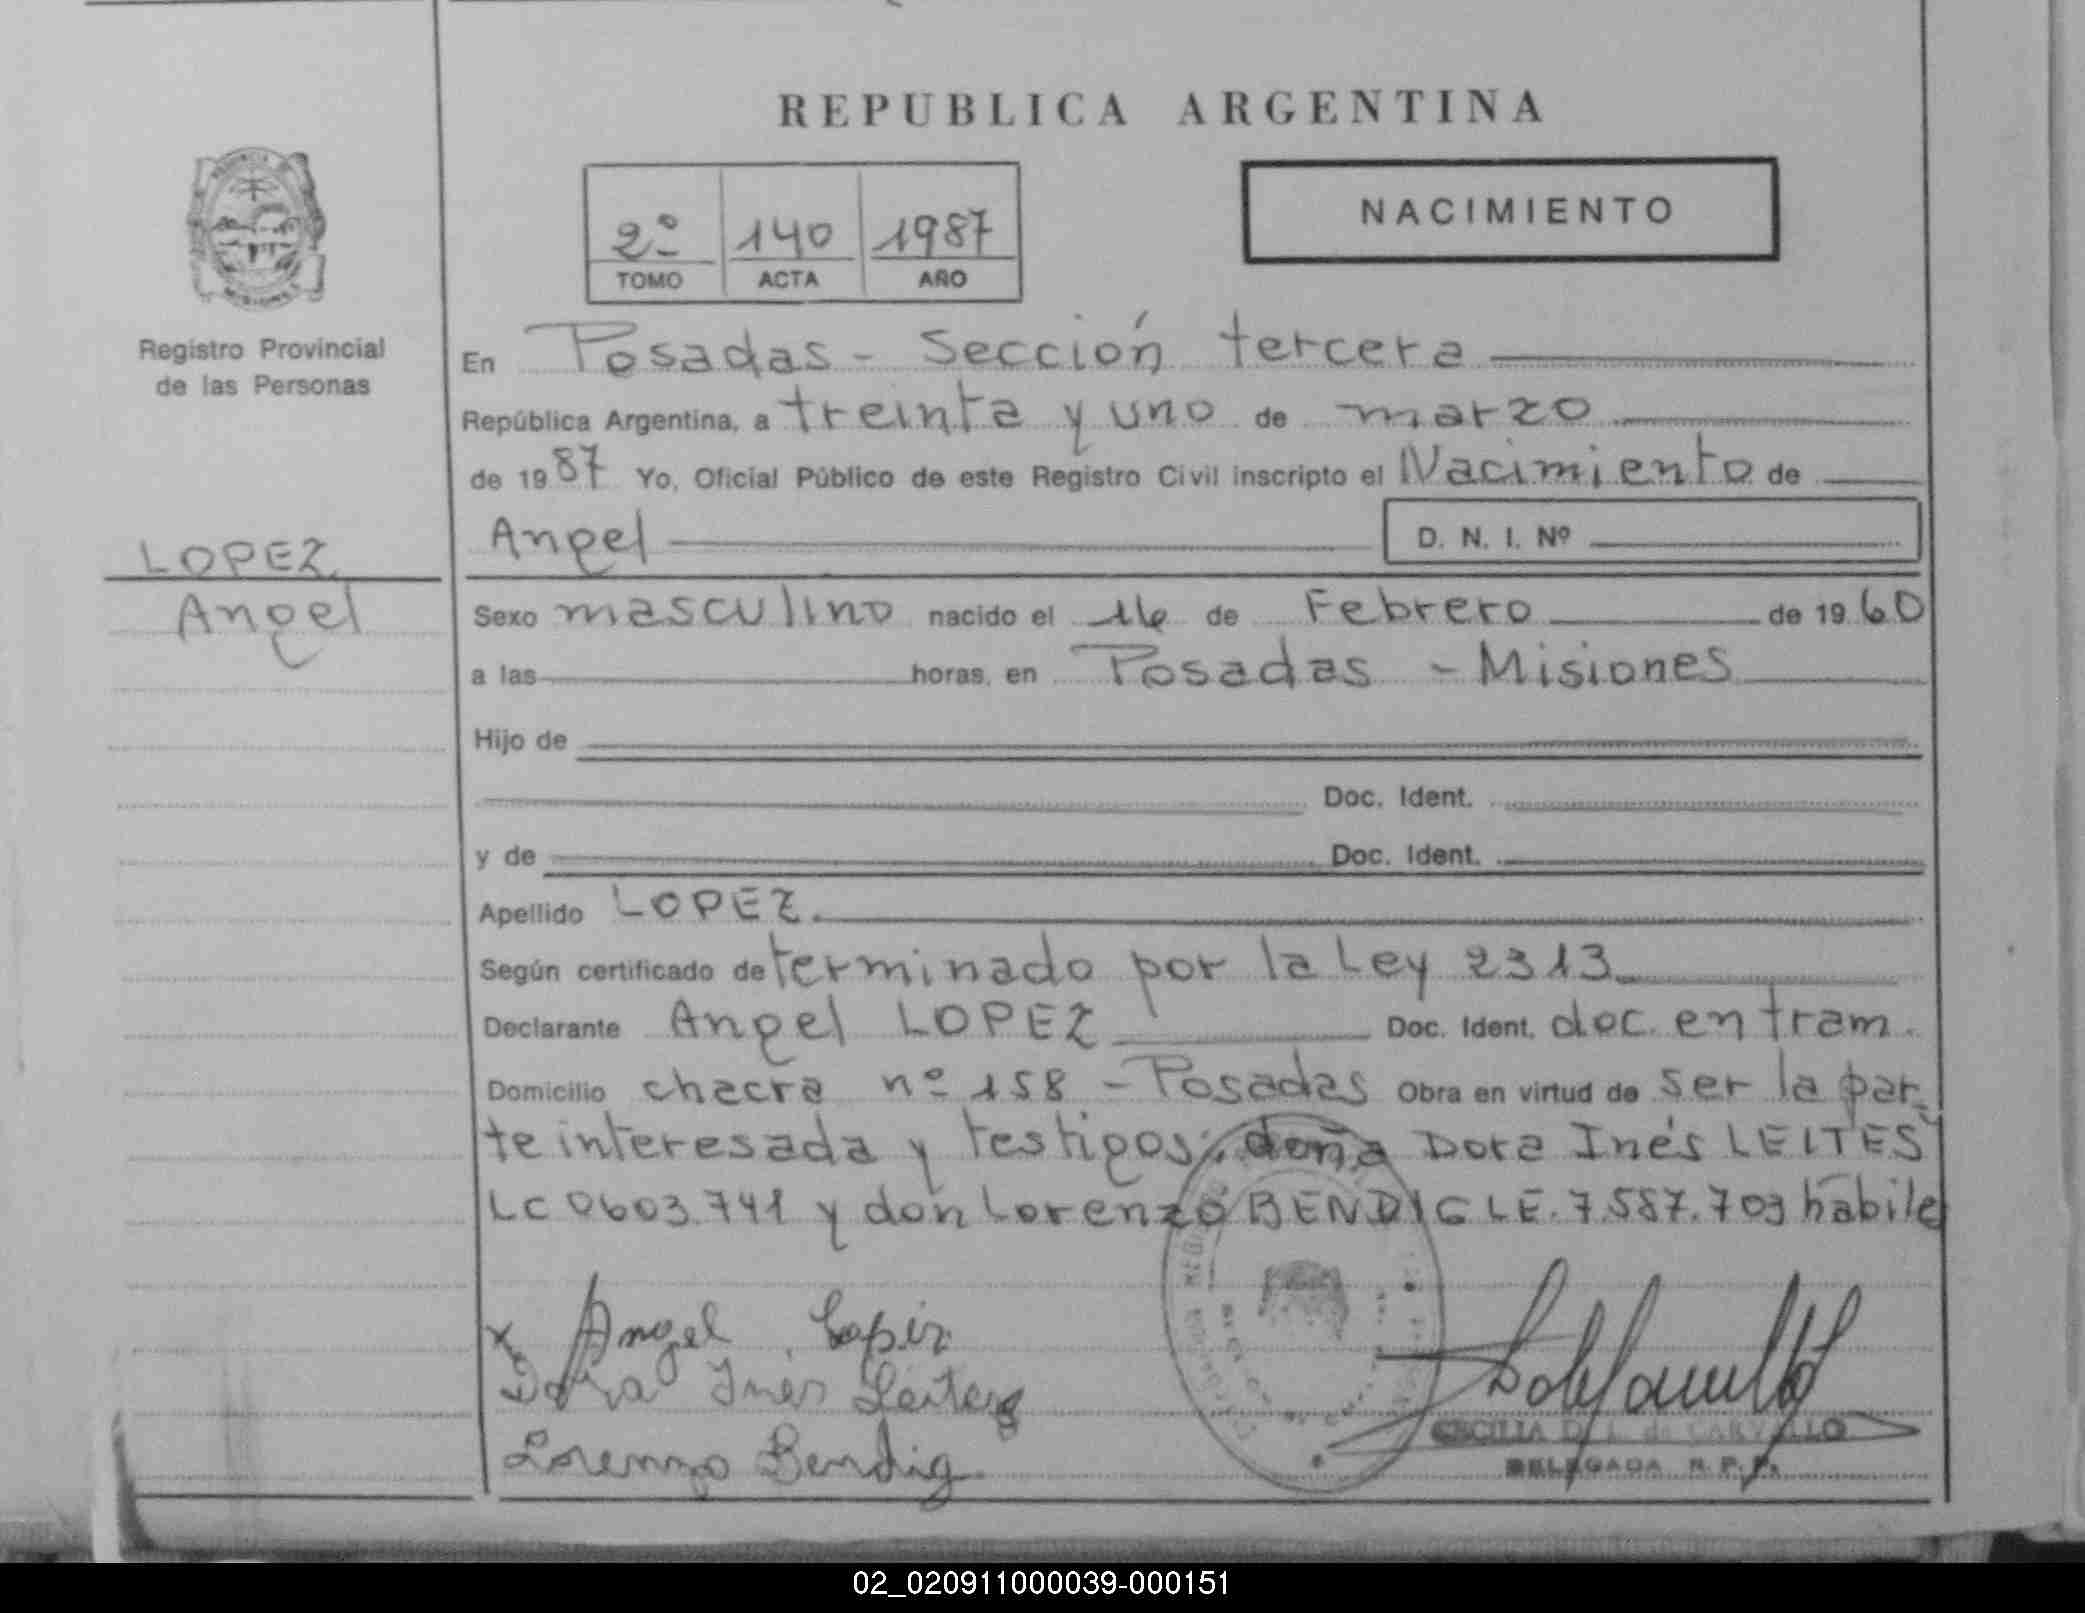 REPUBLICA ARGENTINA
2º 140 1987
TOMO ACTA AÑO
NACIMIENTO
Registro Provincial
de las Personas
LOPEZ
Angel
En Posadas - Sección tercera
República Argentina, a treinta y uno de marzo
de 1987 Yo, Oficial Público de este Registro Civil inscripto el Nacimiento de
Angel D. N. I. Nº
Sexo masculino nacido el 16 de Febrero de 1960
a las horas, en Posadas - Misiones
Hijo de
Doc. Ident.
y de Doc. Ident.
Apellido LOPEZ.
Según certificado determinado por la Ley 2313
Declarante Angel LOPEZ Doc. Ident. doc. en tram.
Domicilio chacra nº 158 - Posadas Obra en virtud de ser la par-
te interesada y testigos: doña Dora Inés LEITES
LC 0603.741 y don Lorenzo BENDIG LE. 7.587.703 habile
x Angel Lopez
Dora Ines Leites
Lorenzo Bendig
CECILIA D. L. de CARVALLO
DELEGADA R. P. P.
02_020911000039-000151